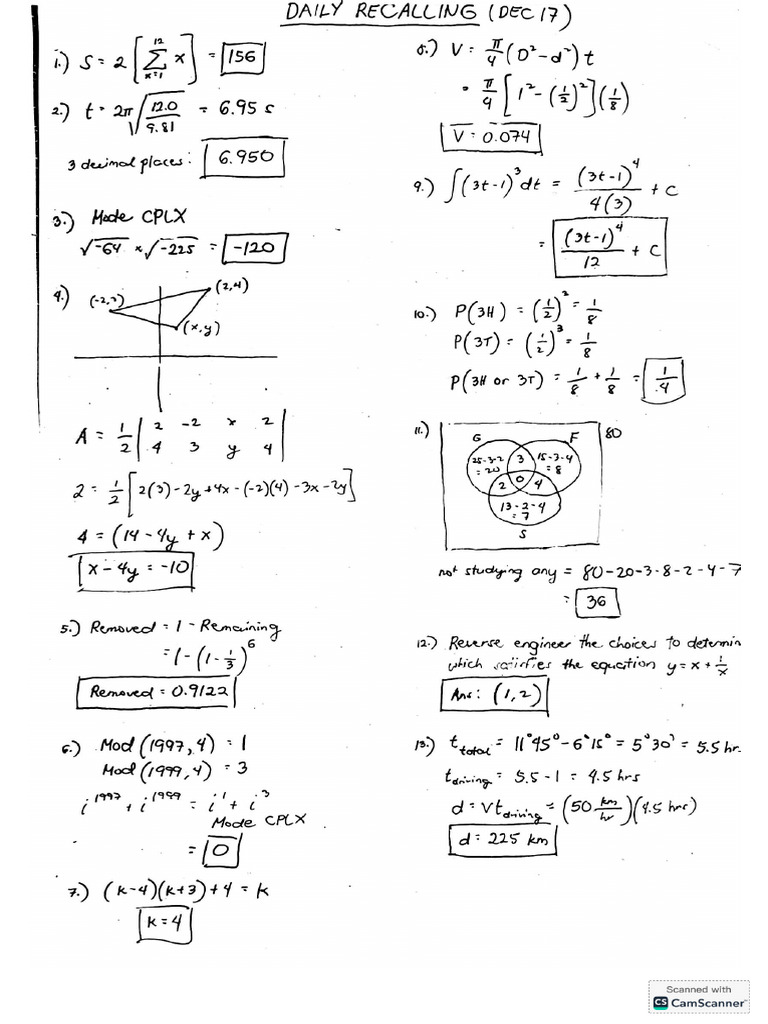 DAILY RECALLING (DEC 17)
1.) S = 2 [ 12 Σ x=1 x ] = 156
2.) t = 2π √(12.0 / 9.81) = 6.95 s
3 decimal places: 6.950
3.) Mode CPLX
√-64 × √-225 = -120
4.) (-2,3) (2,4)
(x,y)
A = 1/2 | 2 -2 x 2
4 3 y 4 |
2 = 1/2 [2(3) - 2y + 4x - (-2)(4) - 3x - 2y]
4 = (14 - 4y + x)
x - 4y = -10
5.) Removed = 1 - Remaining
= 1 - (1 - 1/3)^6
Removed = 0.9122
6.) Mod (1997, 4) = 1
Mod (1999, 4) = 3
i^1997 + i^1999 = i^1 + i^3
Mode CPLX
= 0
7.) (k-4)(k+3) + 4 = k
k = 4
8.) V = π/4 (D² - d²) t
= π/4 [1² - (1/2)²] (1/8)
V = 0.074
9.) ∫(3t-1)³ dt = (3t-1)^4 / 4(3) + C
= (3t-1)^4 / 12 + C
10.) P(3H) = (1/2)² = 1/8
P(3T) = (1/2)³ = 1/8
P(3H or 3T) = 1/8 + 1/8 = 1/4
11.) 80
G F
25-3-2 = 20 3 15-3-4 = 8
2 0 4
13-2-4 = 7
S
not studying any = 80-20-3-8-2-4-7
= 36
12.) Reverse engineer the choices to determin
which satisfies the equation y = x + 1/x
Ans: (1,2)
13.) t total = 11°45° - 6°15° = 5°30' = 5.5 hr.
t driving = 5.5 - 1 = 4.5 hrs
d = Vt driving = (50 km/hr)(4.5 hrs)
d = 225 km
Scanned with
CS CamScanner